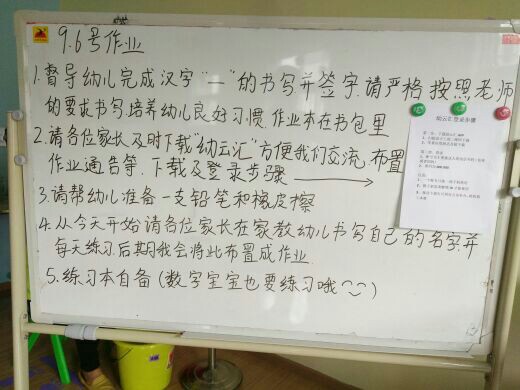 9.6号作业
1.督导幼儿完成汉字“一”的书写并签字.请严格按照老师
的要求书写.培养幼儿良好习惯.作业本在书包里
2.请各位家长及时下载“幼云汇”方便我们交流,布置
作业通告等 下载及登录步骤
3.请帮幼儿准备一支铅笔和橡皮擦
4.从今天开始请各位家长在家教幼儿书写自己的名字.并
每天练习后期我会将此布置成作业
5.练习本自备(数字宝宝也要练习哦)
幼云汇登录步骤